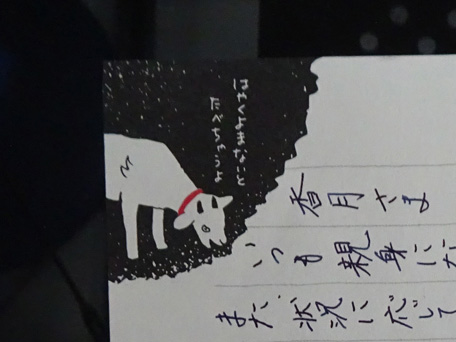 はやくよまないと
たべちゃうよ
香月さま
いつも親身にな
また、状況に応じて